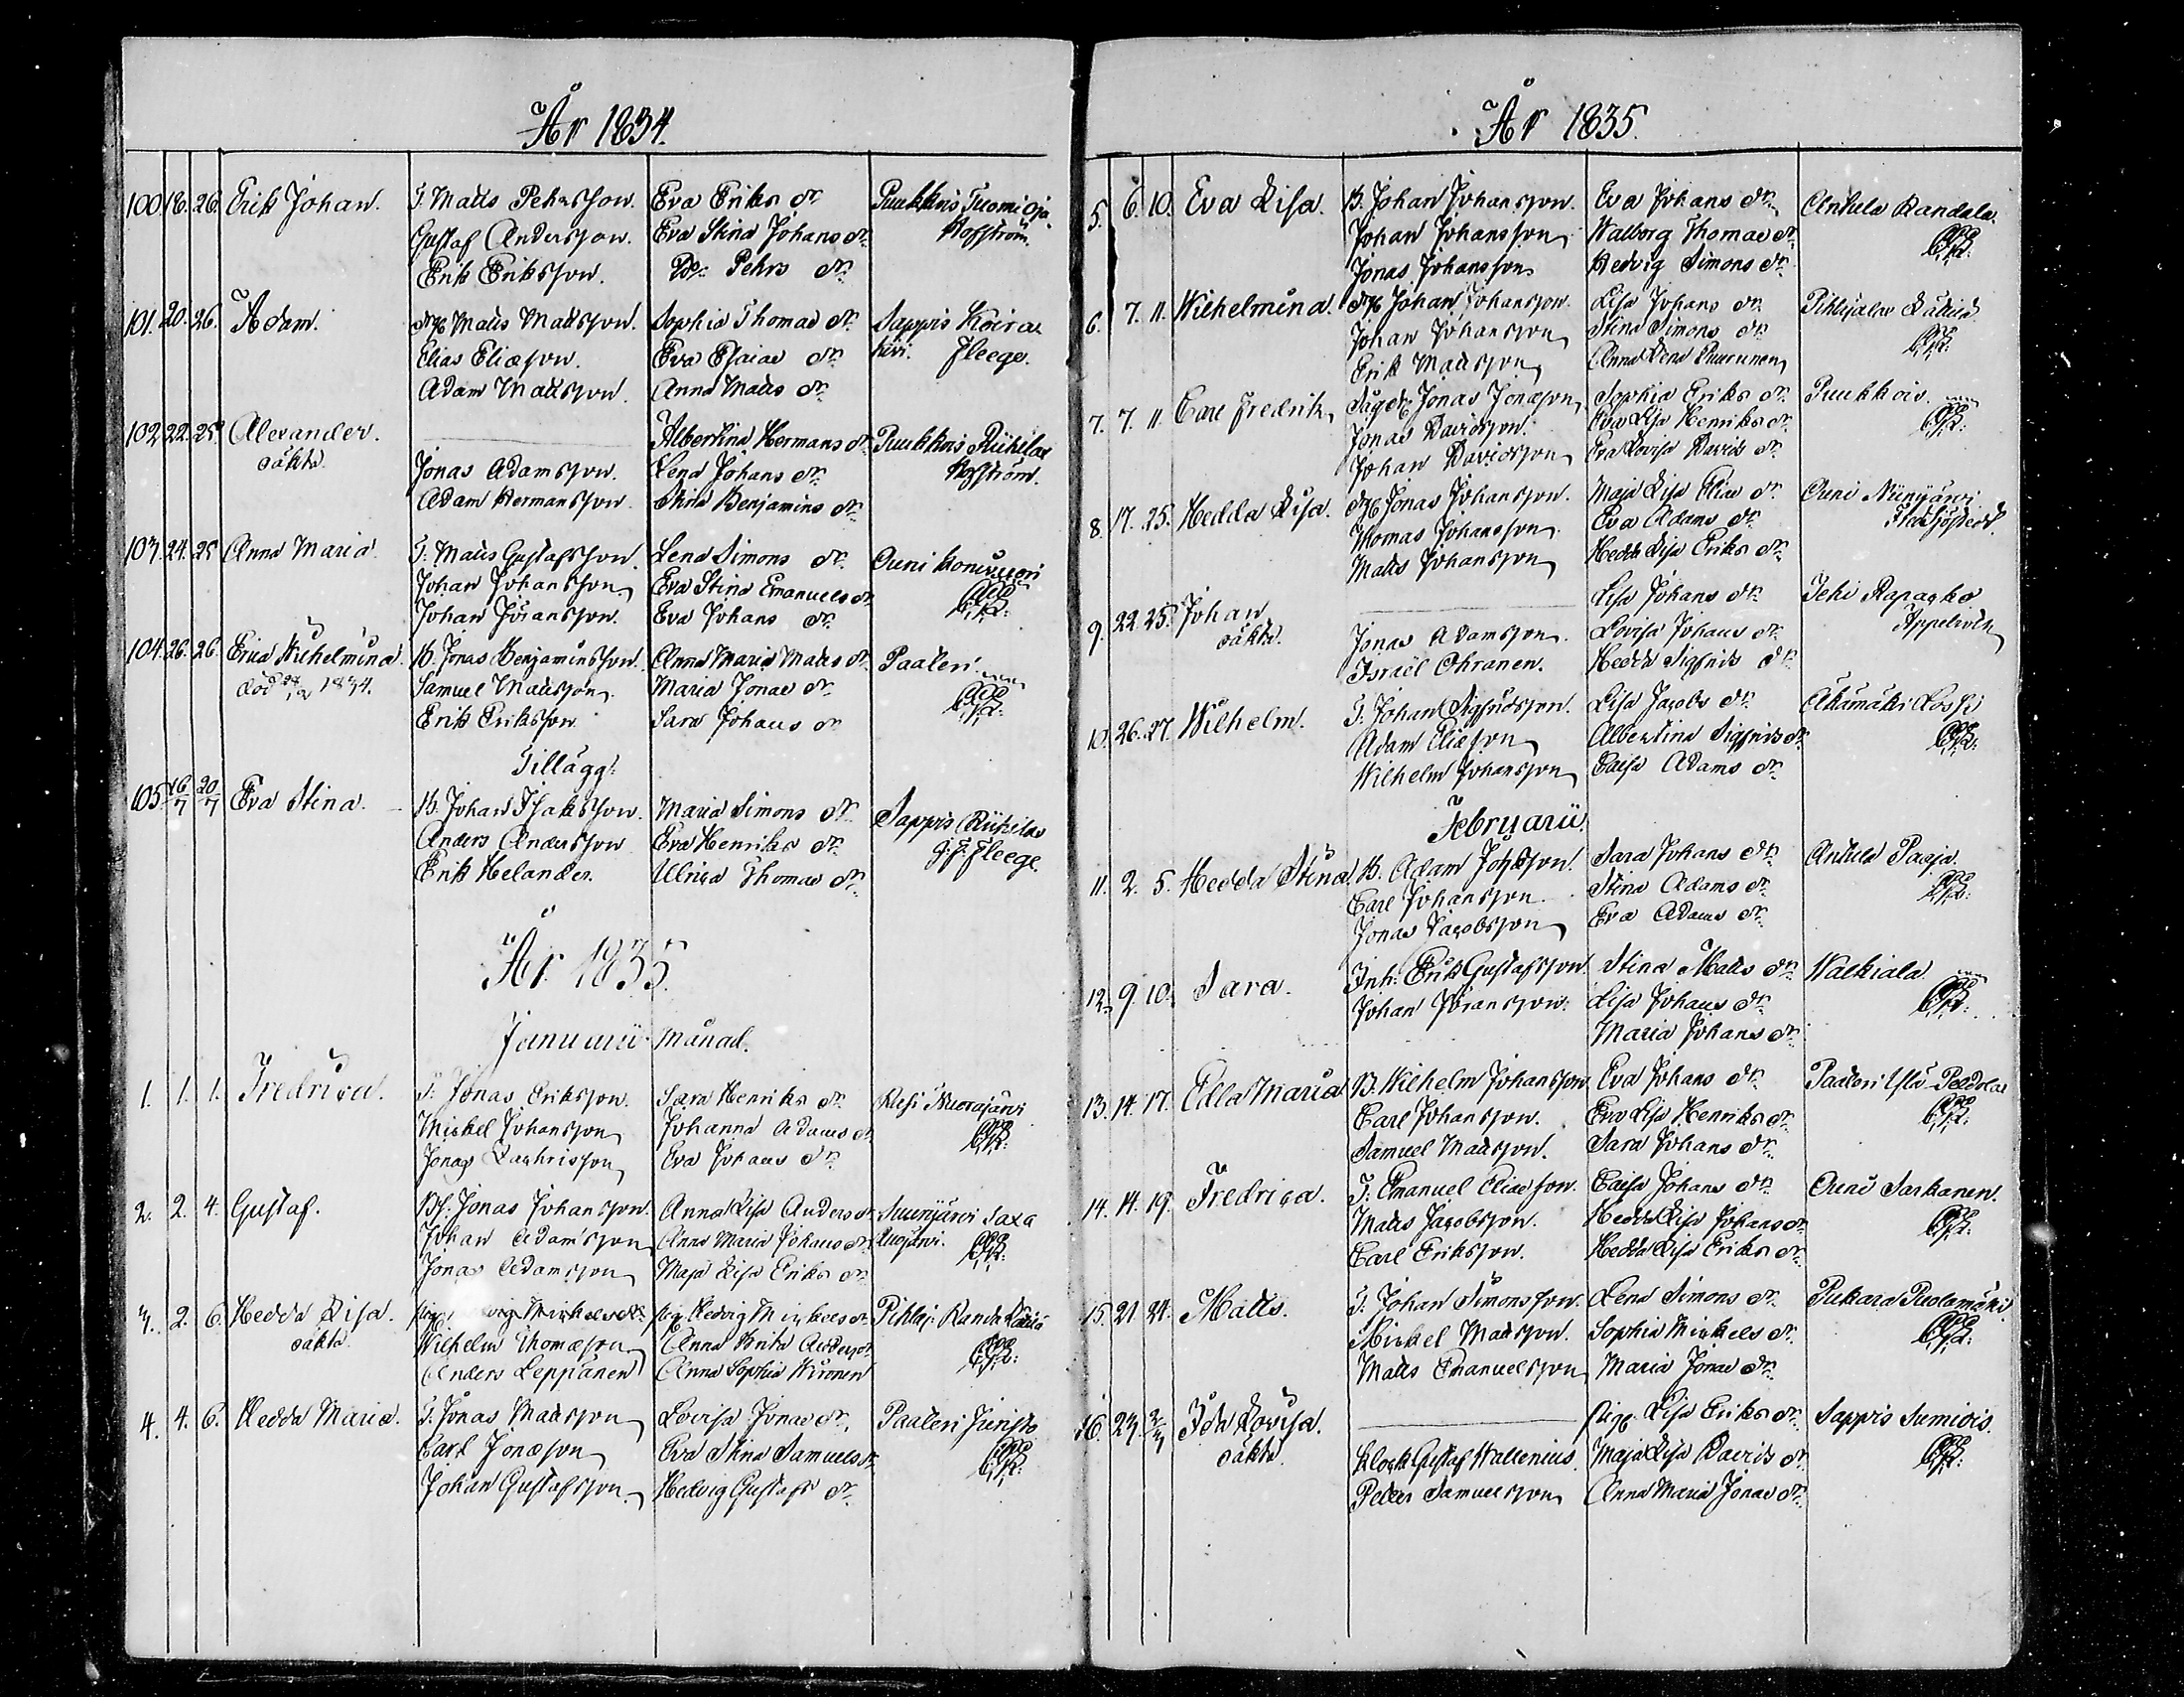 År 1834.
100. 16. 26. Erik Johan. T. Matts Pehrsson. Eva Eriks dr Puukkois Tuomi oja
Gustaf Andersson. Eva Stina Johans dr Hofström.
Erik Eriksson. Do Pehrs dr
101. 20. 26. Adam. Matts Mattsson. Sophia Thomas dr Sappis Koira
Elias Eliæson. Eva Esaias dr kivi. Fleege.
Adam Mattsson. Anna Matts dr
102 22. 25. Alexander. Albertina Hermans dr Puukkois Riihelas
oäkta. Jonas Adamsson. Lena Johans dr Hofström.
Adam Hermansson. Stina Benjamins dr
103. 24. 25 Anna Maria. T. Matts Gustafsson. Lena Simons dr Ouni
Johan Johansson Eva Stina Emanuels dr
Johan Jöransson. Eva Johans dr
104. 26. 26. Erica Wilhelmina. B. Jonas Benjaminsson. Anna Maria Matts dr Paateri
död 1834. Samuel Mattsson. Maria Jonæ dr
Erik Eriksson Sara Johans dr
Tillägg:
105. 16/7 20/7 Eva Stina. B. Johan Isaksson. Maria Simons dr Sappis Riihelas
Anders Andersson Eva Henriks dr J. F. Fleege.
Erik Helander. Ulrica Thomas dr
År 1835.
Januarii Månad.
1. 1. 1. Fredrica. T. Jonas Eriksson. Sara Henriks dr
Mickel Johansson Johanna Adams dr
Jonas Zachrisson Eva Johans dr
2. 2. 4. Gustaf. Jonas Johansson. Anna Lisa Anders dr Suurijärvi Saxa
Johan Adamsson Anna Maria Johans dr
Jonas Adamsson Maja Lisa Eriks dr
3. 2. 6. Hedda Lisa. Hedvig Mickels dr Pihlaj: Randa
oäkta Wilhelm Thomæson Anna Brita Anders dr
Anders Leppänen Anna Sophia
4. 4. 6. Hedda Maria. T. Jonas Mattsson Lovisa Jonæ dr. Paateri
Carl Jonæson Eva Stina Samuels dr
Johan Gustafsson Hedvig Gustafs dr
År 1835.
5. 6. 10. Eva Lisa. B. Johan Johansson. Eva Johans dr Anhula Randala.
Johan Johansson Walborg Thomas dr
Jonas Johansson Hedvig Simons dr
6. 7. 11. Wilhelmina. Johan Johansson. Lisa Johans dr
Johan Johansson Stina Simons dr
Erik Mattsson Anna Lena Puurunen
7. 7. 11. Carl Fredrik Jonas Jonæson Sophia Eriks dr Puukkois.
Jonas Davidsson. Eva Lisa Henriks dr
Johan Davidsson Eva Lovisa Davids dr
8. 17. 25. Hedda Lisa. Jonas Johansson. Maja Lisa Eliæ dr Ouni Niinijärvi
Thomas Johansson Eva Adams dr
Matts Johansson Hedda Lisa Eriks dr
9. 22. 25. Johan Lisa Johans dr
oäkta. Jonas Adamsson. Lovisa Johans dr Appelroth
Israël Ohranen. Hedda Sigfrids dr
10. 26. 27. Wilhelm. T. Johan Sigfridsson. Lisa Jacobs dr
Adam Eliæson Albertina Sigfrids dr
Wilhelm Johansson Caisa Adams dr
Februarii.
11. 2. 5. Hedda Stina. B. Adam Sara Johans dr Anhula Pasja.
Carl Johansson. Stina Adams dr
Jonas Jacobsson Eva Adams dr
12. 9. 10. Sara. Inh: Erik Gustafsson. Stina Matts dr Walkiala
Johan Jöransson: Lisa Johans dr
Maria Johans dr
13. 14. 17. Edla Maria B. Wilhelm Johansson Eva Johans dr Paateri
Carl Johansson. Eva Lisa Henriks dr
Samuel Mattsson. Sara Johans dr
14. 14. 19. Fredrica. T. Emanuel Eliæson. Caisa Johans dr Ouni Sarkanen.
Matts Jacobsson. Hedda Lisa Johans dr
Carl Eriksson. Hedda Lisa Eriks dr
15. 21. 24. Matts. T. Johan Simonsson. Lena Simons dr Pukara Puolamäki.
Mickel Mattsson. Sophia Mickels dr
Matts Emanuelsson Maria Jonæ dr
16. 23. Ida Lovisa. Pig: Lisa Eriks dr Sappis
oäkta. Klock: Gustaf Wallenius. Maja Lisa Davids dr
Petter Samuelsson Anna Maria Jonæ dr